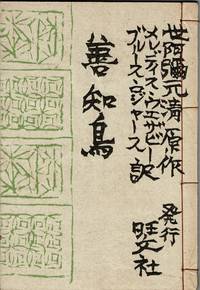 世阿彌元清原作
メレディス・ウエザビー
ブルース・ロジャース 訳
善知鳥
発行
旺文社